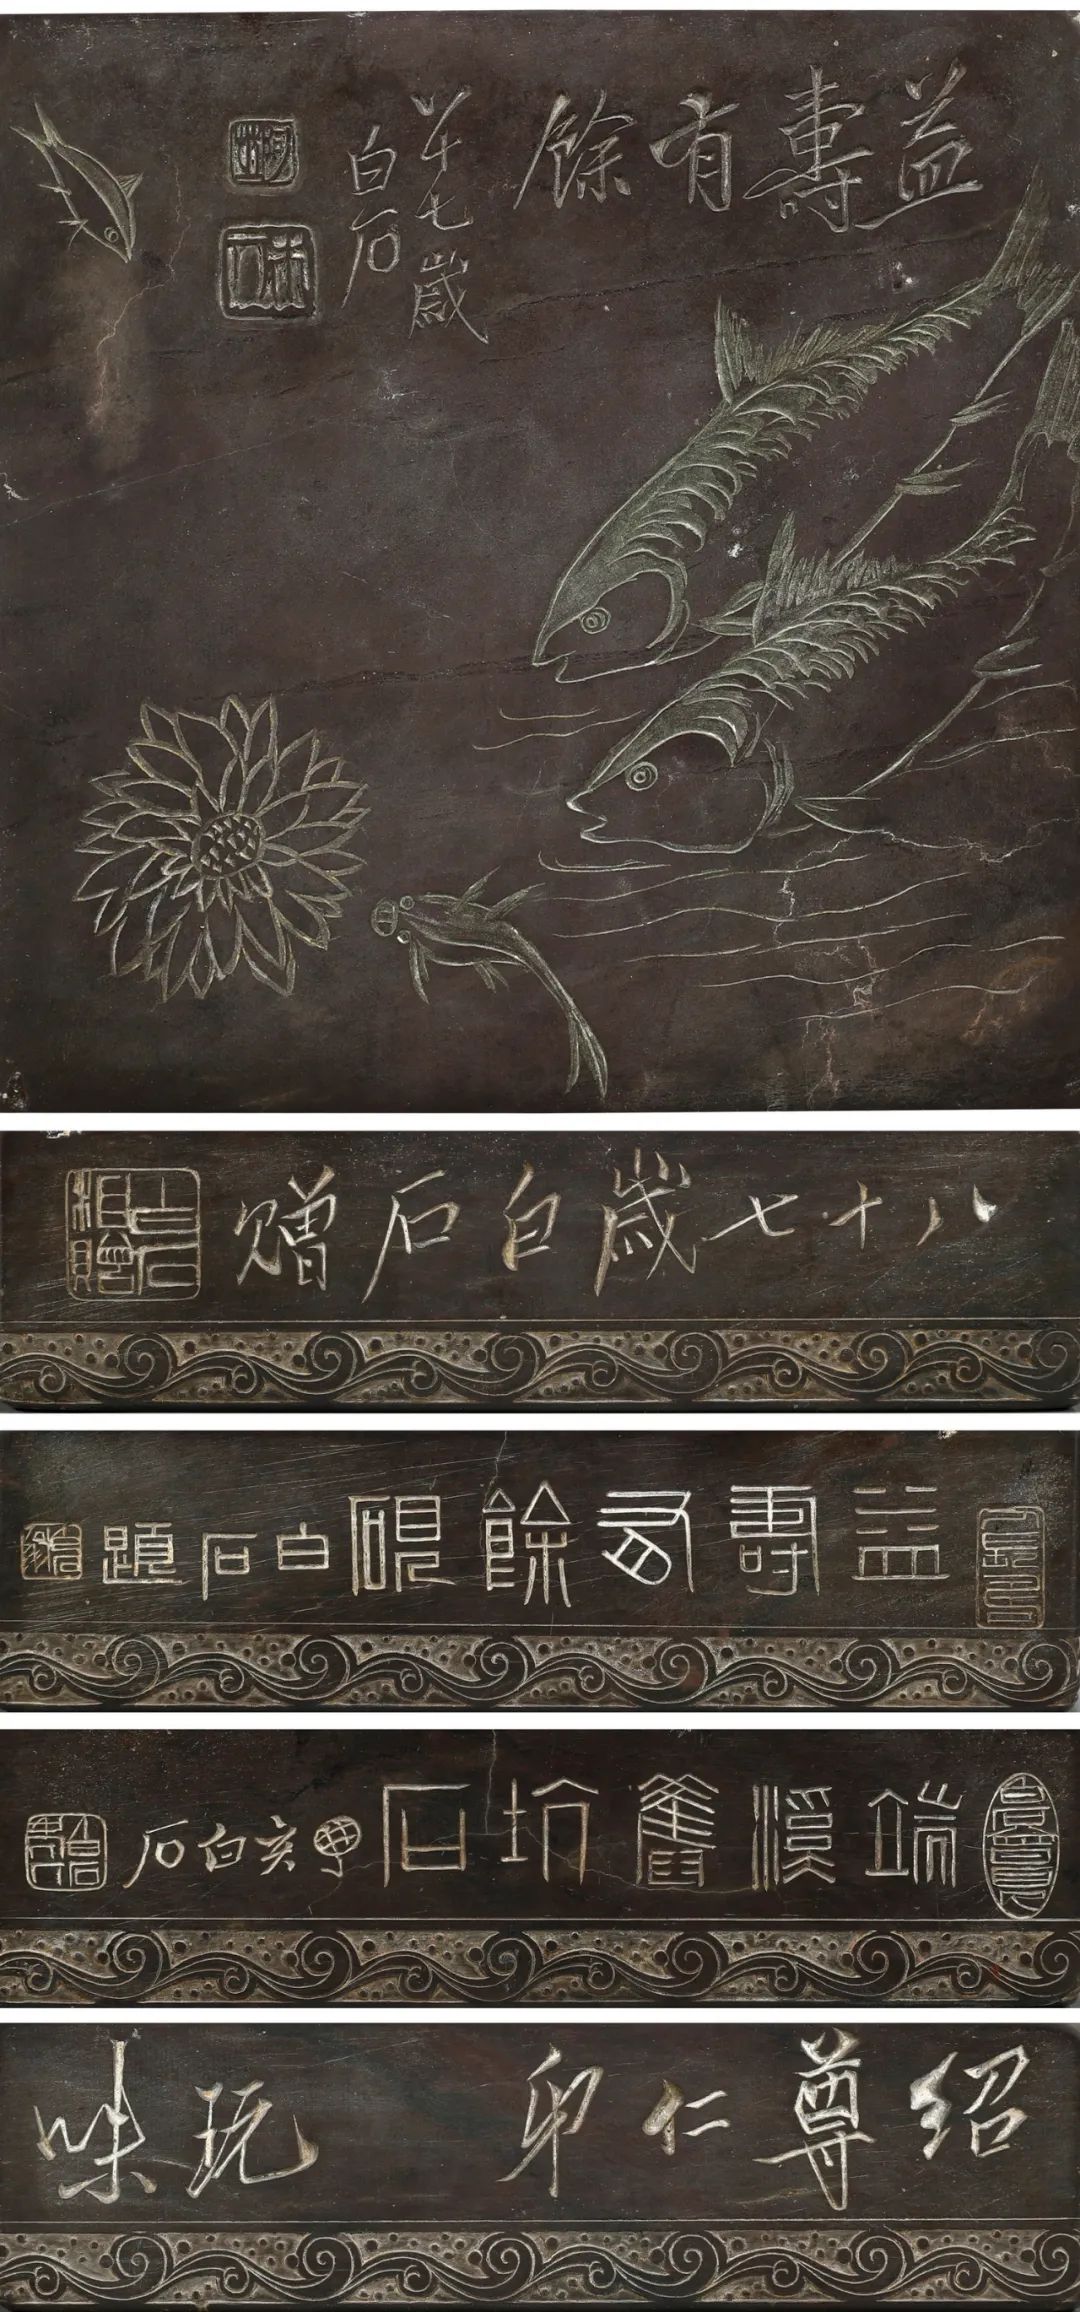 益壽有餘
八十七歲
白石
八十七歲白石贈
益壽有餘硯白石題
端溪舊坑石
亥白石
紹尊仁
玩味